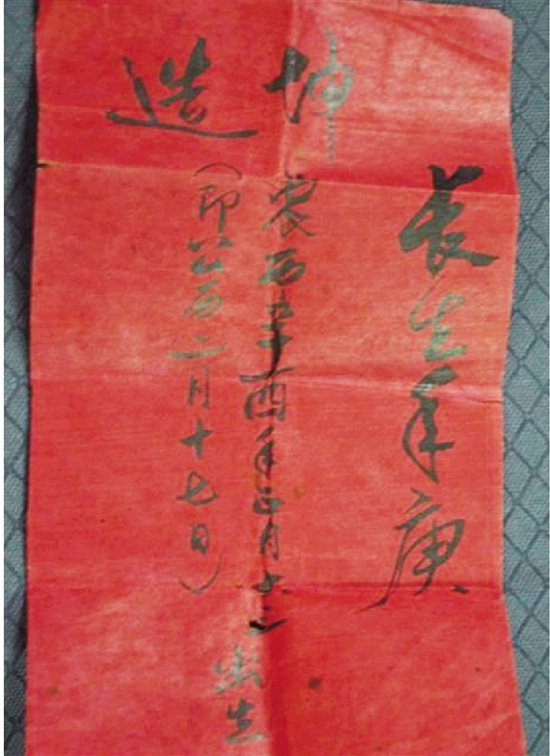 長生年庚
坤造
農历辛酉年正月十三出生
(即公历二月十七日)